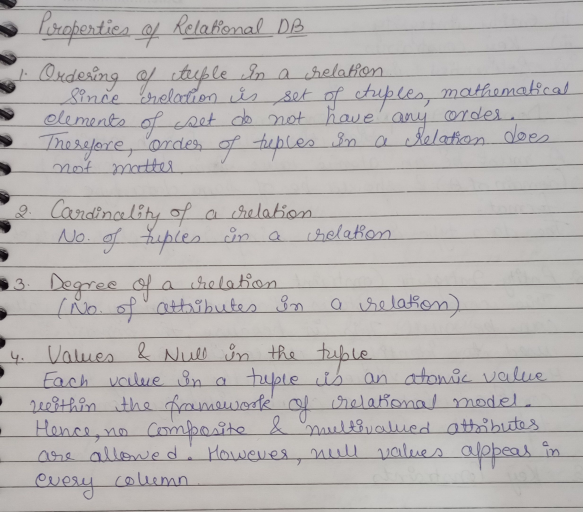 Properties of Relational DB
1. Ordering of tuple in a relation
Since relation is set of tuples, mathematical
elements of set do not have any order.
Therefore, order of tuples in a relation does
not matter.
2. Cardinality of a relation
No. of tuples in a relation
3. Degree of a relation
(No. of attributes in a relation)
4. Values & Null in the tuple
Each value in a tuple is an atomic value
within the framework of relational model.
Hence, no composite & multivalued attributes
are allowed. However, null values appear in
every column